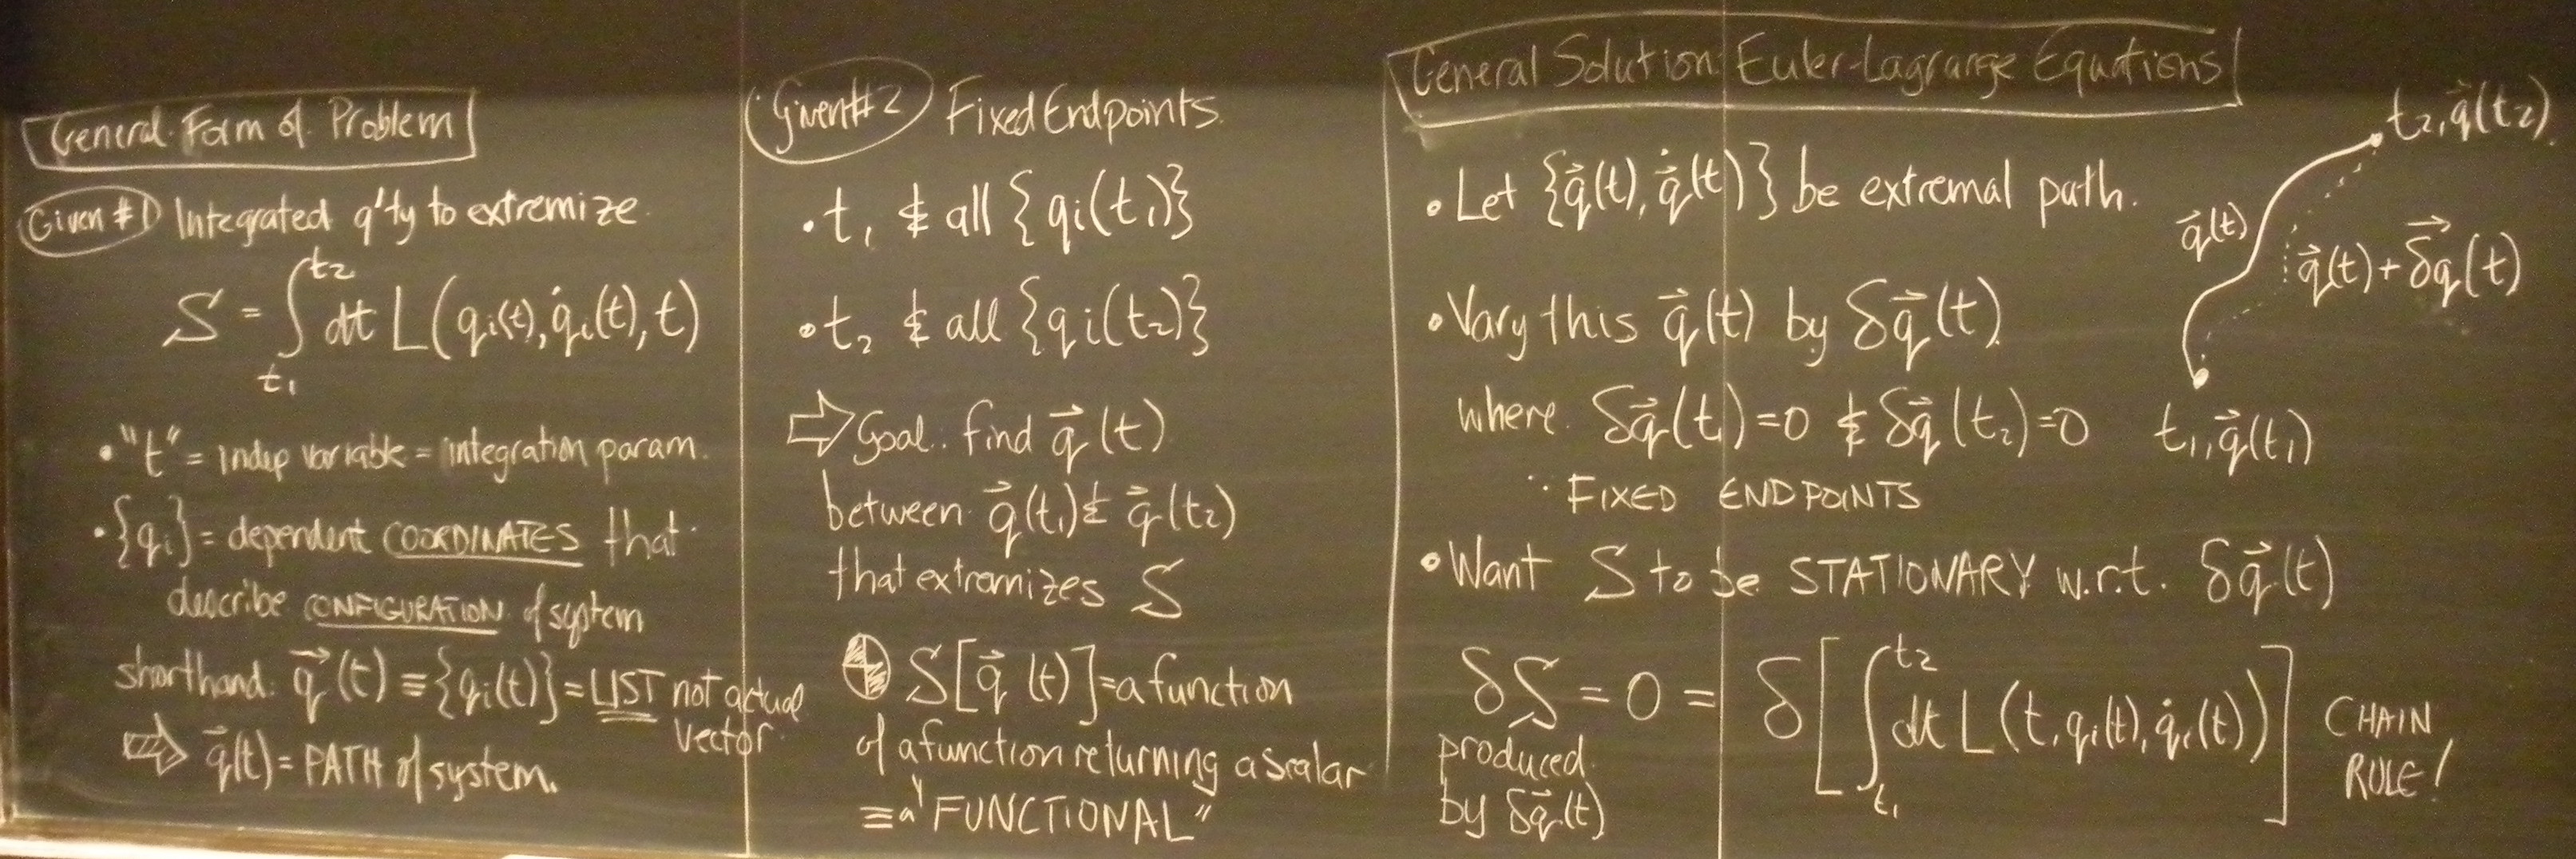 General Form of Problem
Given #1 Integrated q'ty to extremize
S = ∫_{t₁}^{t₂} dt L(qᵢ(t), q̇ᵢ(t), t)
• "t" = indep variable = integration param.
• {qᵢ} = dependent COORDINATES that
describe CONFIGURATION of system
shorthand: q⃗(t) ≡ {qᵢ(t)} = LIST not actual
vector
⇒ q⃗(t) = PATH of system.
Given #2 Fixed Endpoints
• t₁ & all {qᵢ(t₁)}
• t₂ & all {qᵢ(t₂)}
⇒ Goal: find q⃗(t)
between q⃗(t₁) & q⃗(t₂)
that extremizes S
⊕ S[q⃗(t)] = a function
of a function returning a scalar
≡ a "FUNCTIONAL"
General Solution: Euler-Lagrange Equations
• Let {q⃗(t), q⃗̇(t)} be extremal path.
• Vary this q⃗(t) by δq⃗(t)
where δq⃗(t₁) = 0 & δq⃗(t₂) = 0
∵ FIXED ENDPOINTS
• Want S to be STATIONARY w.r.t. δq⃗(t)
δS = 0 = δ[∫_{t₁}^{t₂} dt L(t, qᵢ(t), q̇ᵢ(t))] CHAIN
RULE!
produced
by δq⃗(t)
t₂, q⃗(t₂)
q⃗(t)
q⃗(t) + δ⃗q(t)
t₁, q⃗(t₁)